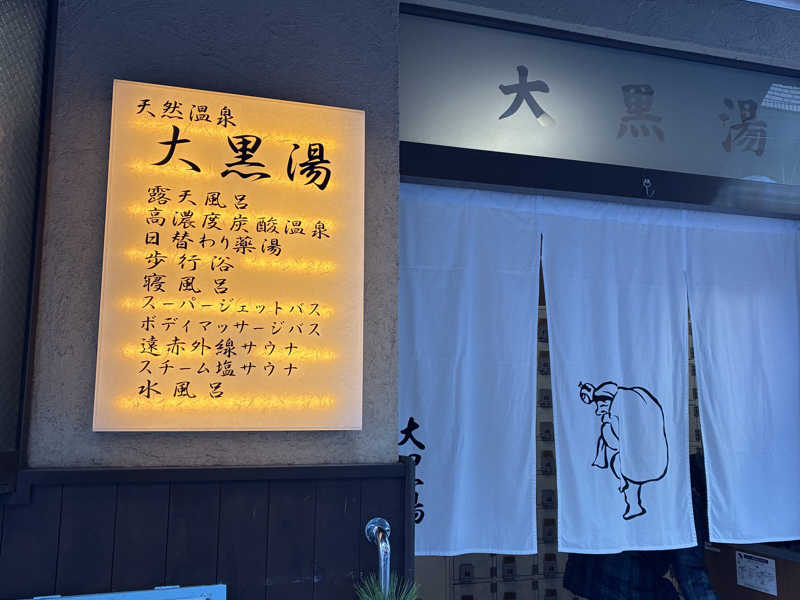 天然温泉
大黒湯
露天風呂
高濃度炭酸温泉
日替わり薬湯
歩行浴
寝風呂
スーパージェットバス
ボディマッサージバス
遠赤外線サウナ
スチーム塩サウナ
水風呂
大黒湯
大黒湯